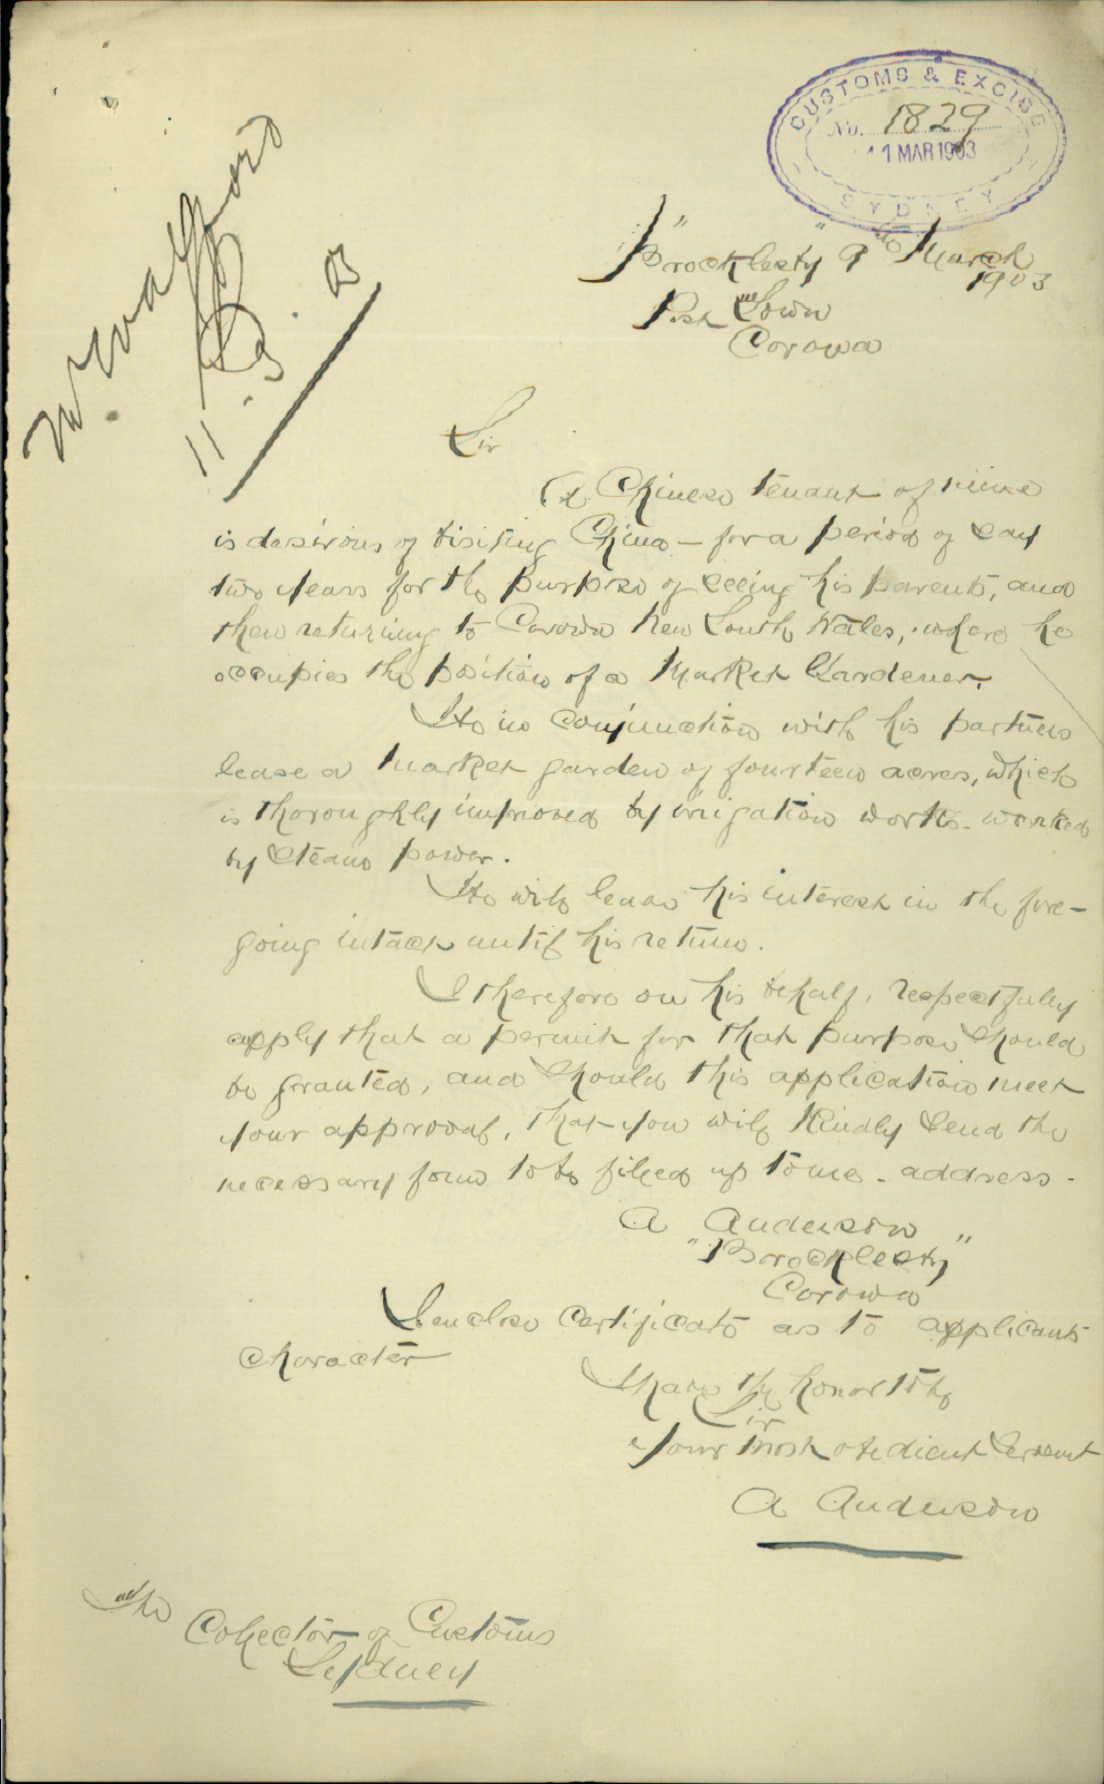 CUSTOMS & EXCISE
No. 1829
11 MAR 1903
SYDNEY
Mr Walford
11.3.03
"Brocklesby" 9th March
1903
Post Town
Corowa
Sir
A Chinese tenant of mine
is desirous of visiting China - for a period of say
two years for the purpose of seeing his parents, and
then returning to Corowa New South Wales, where he
occupies the position of a Market Gardener.
He in conjunction with his partners
lease a market garden of fourteen acres, which
is thoroughly improved by irrigation works - worked
by steam power.
He will leave his interest in the fore-
going intact until his return.
I therefore on his behalf, respectfully
apply that a permit for that purpose should
be granted, and should this application meet
your approval, that you will kindly send the
necessary form to be filled up to me - address -
A Anderson
"Brocklesby"
Corowa
I enclose certificate as to applicants
character
I have the honor to be
Sir
Your most obedient Servant
A Anderson
The
Collector of Customs
Sydney